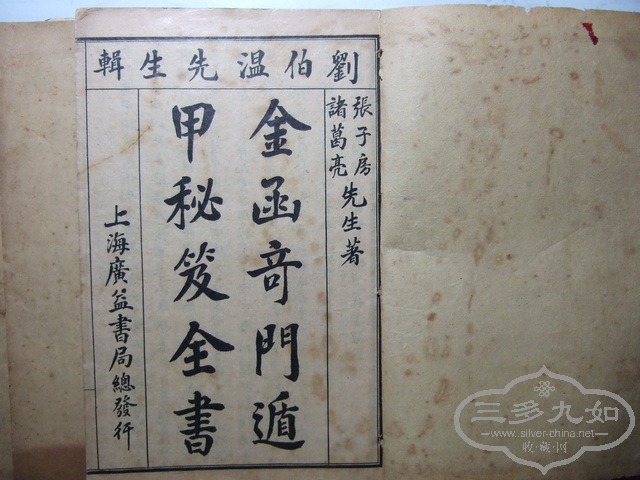 劉伯温先生輯
張子房
諸葛亮
先生著
金函奇門遁
甲秘笈全書
上海廣益書局總發行
三多九如
www.silver-china.net
收·藏·网